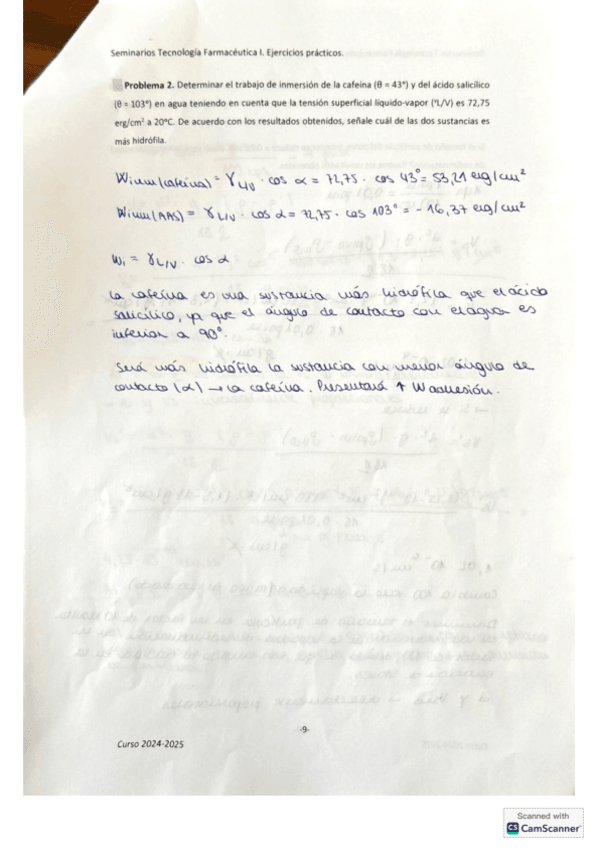 Seminarios Tecnología Farmacéutica I. Ejercicios prácticos.
Problema 2. Determinar el trabajo de inmersión de la cafeína (θ = 43°) y del ácido salicílico
(θ = 103°) en agua teniendo en cuenta que la tensión superficial líquido-vapor (ºL/V) es 72,75
erg/cm² a 20°C. De acuerdo con los resultados obtenidos, señale cuál de las dos sustancias es
más hidrófila.
Winm (cafeína) = γL/V · cos α = 72,75 · cos 43° = 53,21 erg/cm²
Winm (AAS) = γL/V · cos α = 72,75 · cos 103° = -16,37 erg/cm²
Wi = γL/V · cos α
La cafeína es una sustancia más hidrófila que el ácido
salicílico, ya que el ángulo de contacto con el agua es
inferior a 90°.
Será más hidrófila la sustancia con menor ángulo de
contacto (α) → la cafeína. Presentará ↑ W adhesión.
-9-
Curso 2024-2025
Scanned with
CS CamScanner